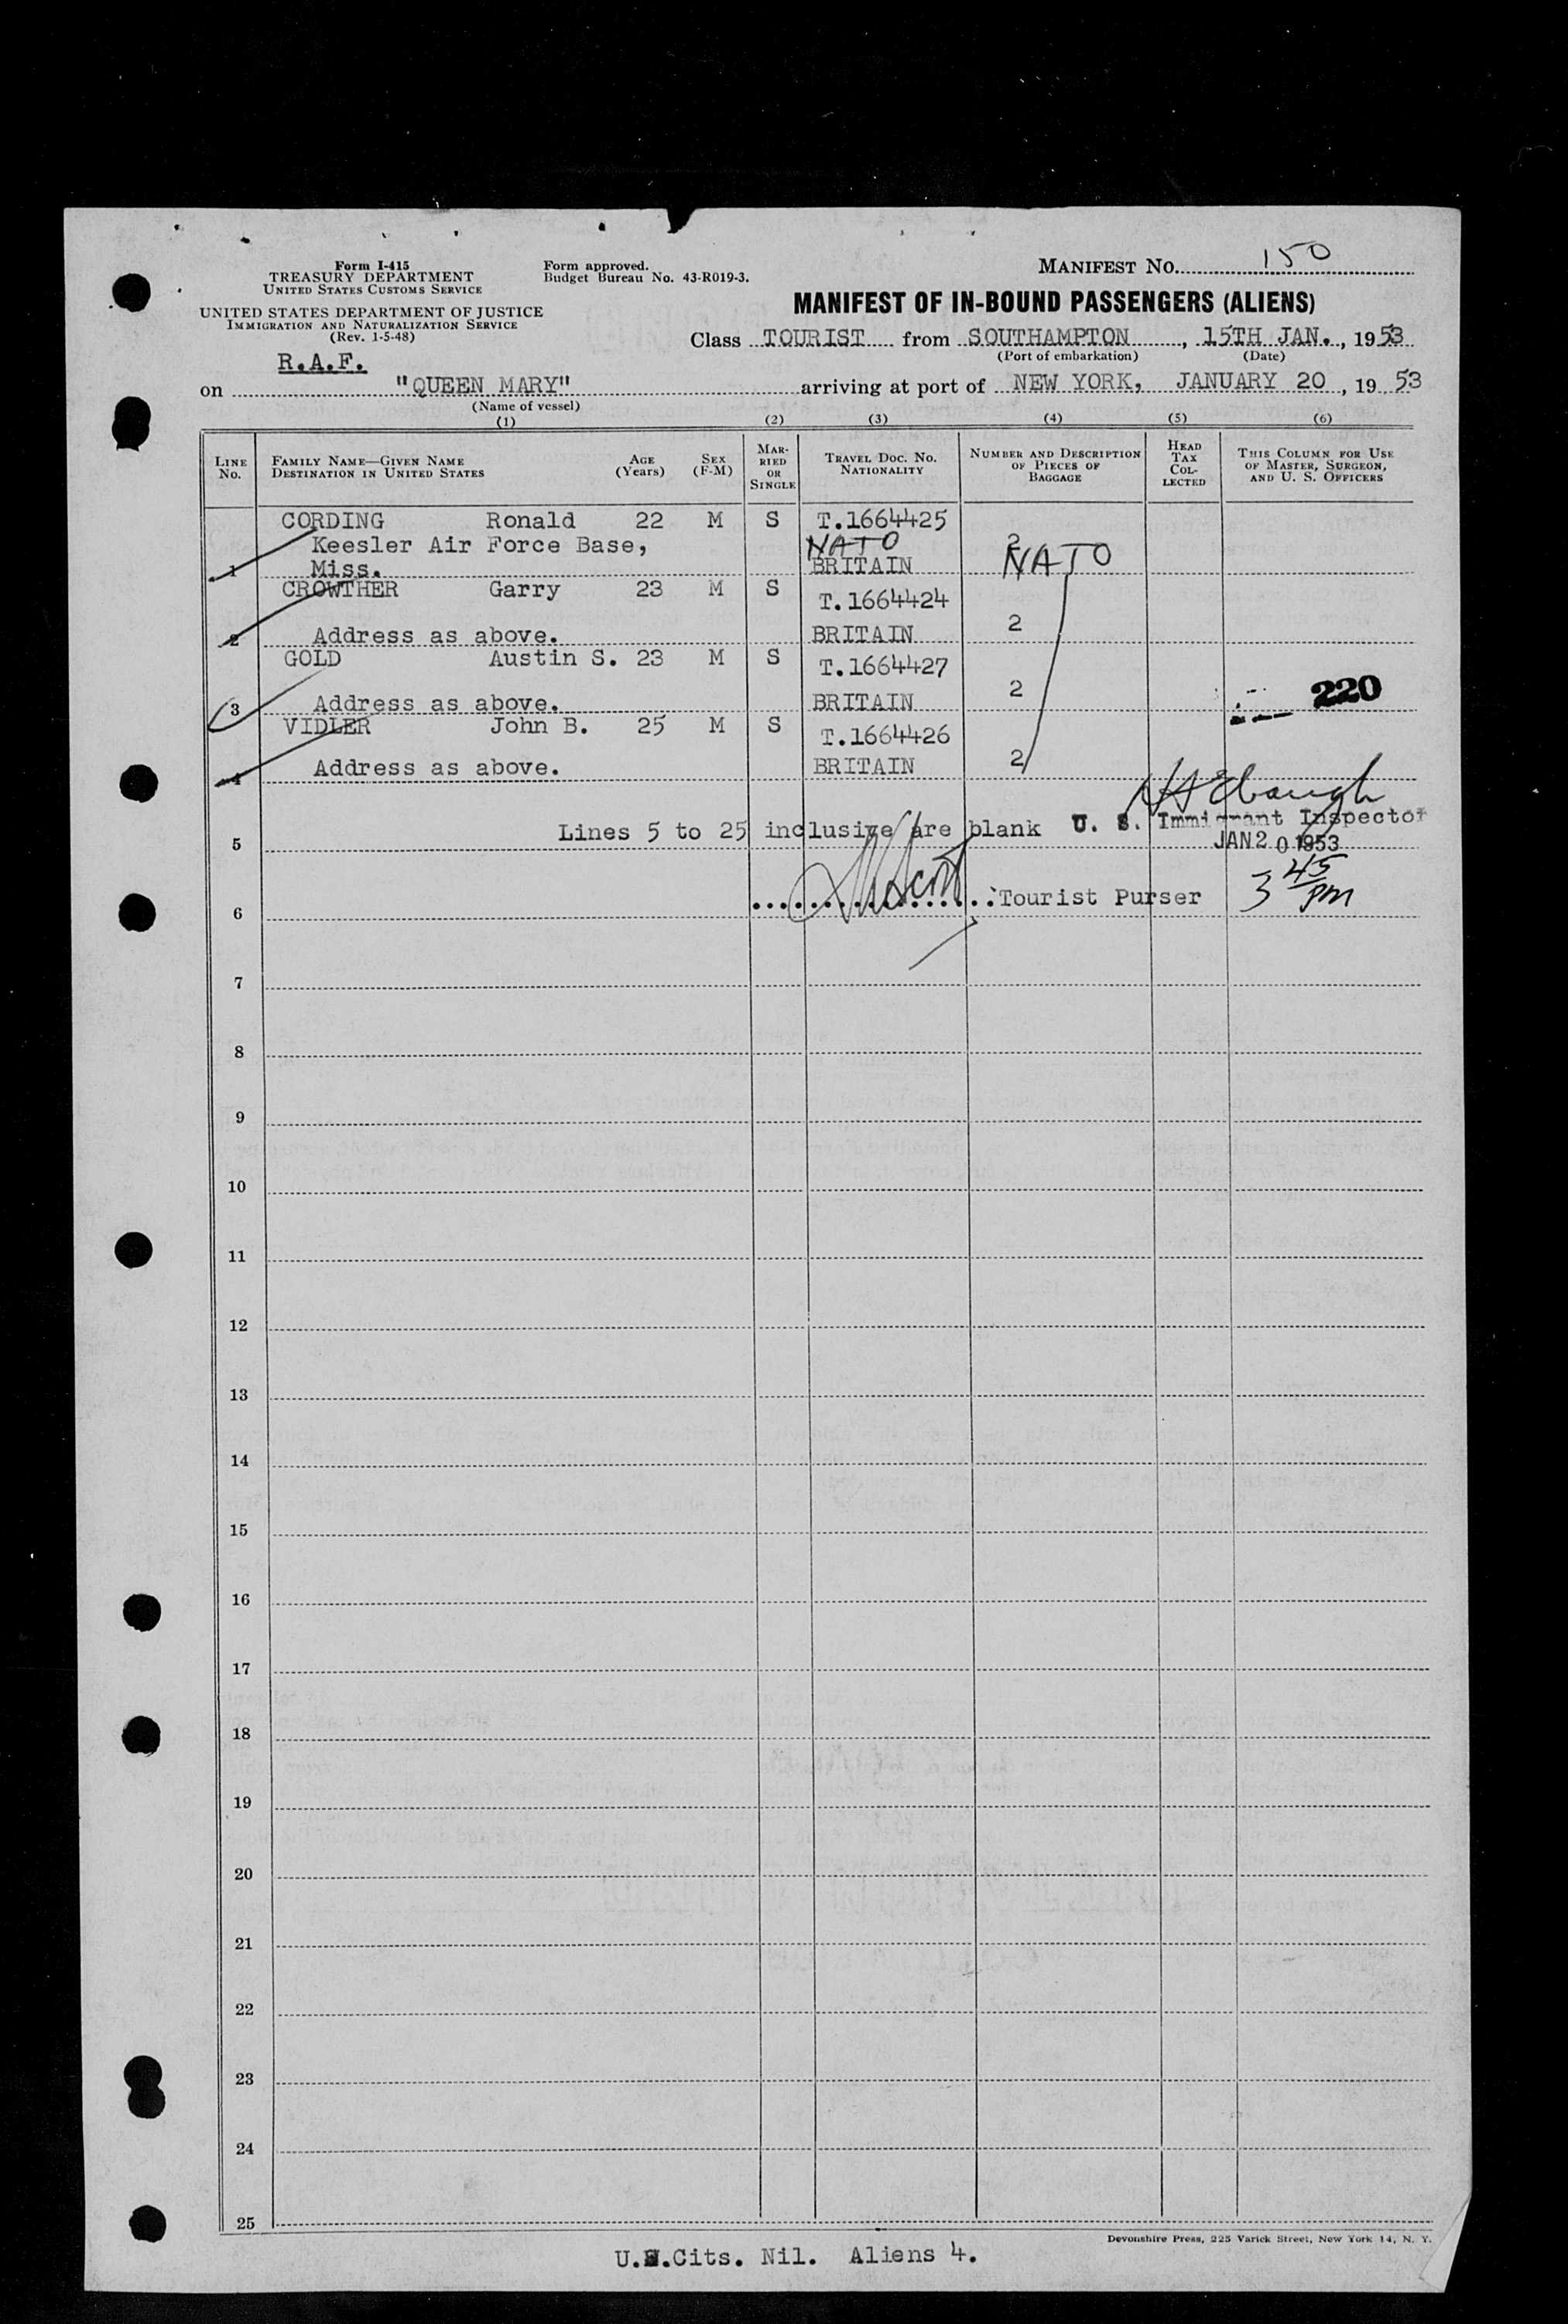 Form I-415
TREASURY DEPARTMENT
UNITED STATES CUSTOMS SERVICE
UNITED STATES DEPARTMENT OF JUSTICE
IMMIGRATION AND NATURALIZATION SERVICE
(Rev. 1-5-48)
Form approved.
Budget Bureau No. 43-R019-3.
MANIFEST NO. 150
MANIFEST OF IN-BOUND PASSENGERS (ALIENS)
Class TOURIST from SOUTHAMPTON, 15TH JAN., 1953
(Port of embarkation) (Date)
R.A.F.
on "QUEEN MARY" arriving at port of NEW YORK, JANUARY 20, 1953
(Name of vessel)
(1) (2) (3) (4) (5) (6)
LINE No. FAMILY NAME—GIVEN NAME DESTINATION IN UNITED STATES AGE (Years) SEX (F-M) MARRIED OR SINGLE TRAVEL DOC. NO. NATIONALITY NUMBER AND DESCRIPTION OF PIECES OF BAGGAGE HEAD TAX COLLECTED THIS COLUMN FOR USE OF MASTER, SURGEON, AND U. S. OFFICERS
CORDING Ronald 22 M S T.1664425
Keesler Air Force Base, NATO 2 NATO
1 Miss. BRITAIN
CROWTHER Garry 23 M S T.1664424
2 Address as above. BRITAIN 2
GOLD Austin S. 23 M S T.1664427
3 Address as above. BRITAIN 2 220
VIDLER John B. 25 M S T.1664426
4 Address as above. BRITAIN 2
Lines 5 to 25 inclusive are blank U. S. Immigrant Inspector
5 JAN 20 1953
6 Tourist Purser 3 45 pm
7
8
9
10
11
12
13
14
15
16
17
18
19
20
21
22
23
24
25
Devonshire Press, 225 Varick Street, New York 14, N. Y.
U.S.Cits. Nil. Aliens 4.